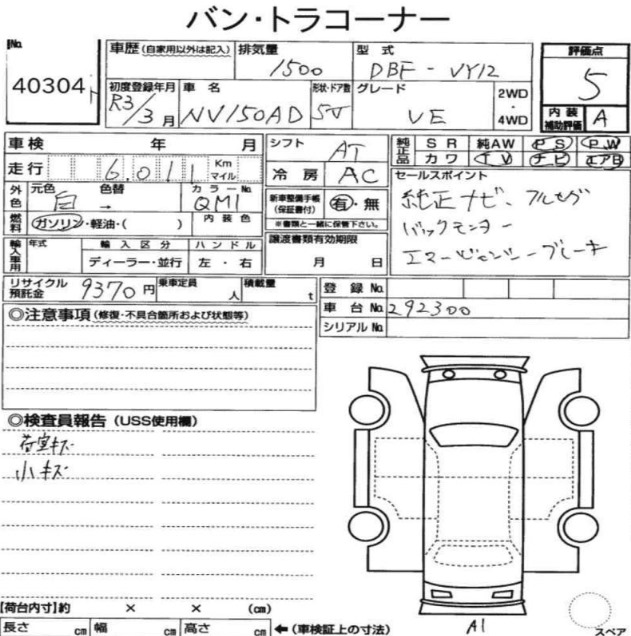 バン・トラコーナー
No. 40304
車歴 (自家用以外は記入) 排気量 1500 型式 DBF - VY12 評価点 5
初度登録年月 R3/3月 車名 NV150AD 形状・ドア数 5V グレード VE 2WD・4WD 内装補助評価 A
車検 年 月 シフト AT 純正品 SR 純AW PS PW
走行 6,011 Km マイル 冷房 AC カワ TV ナビ エアB
外色 元色 白 色替 → カラーNo. QM1 新車整備手帳(保証書付) 有・無 ※書類と一緒に保管下さい。 セールスポイント
純正ナビ、フルセグ
バックモニター
エマージェンシーブレーキ
燃料 ガソリン・軽油・( ) 内装色
輸入車用 年式 輸入区分 ハンドル 譲渡書類有効期限
ディーラー・並行 左・右 月 日
リサイクル預託金 9370円 乗車定員 人 積載量 t 登録No.
車台No. 292300
シリアルNo.
◎注意事項 (修復・不具合箇所および状態等)
◎検査員報告 (USS使用欄)
荷室キズ
小キズ
【荷台内寸】約 × × (cm)
長さ cm 幅 cm 高さ cm ←(車検証上の寸法)
A1
スペア